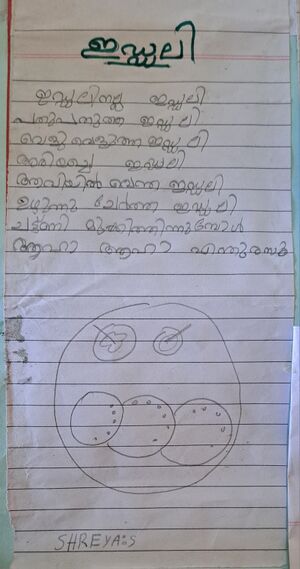 ഇഡ്ഡലി
ഇഡ്ഡലിനല്ല ഇഡ്ഡലി
പതുപതുത്ത ഇഡ്ഡലി
വെളുവെളുത്ത ഇഡ്ഡലി
അരിയച്ചെ ഇഡ്ഡലി
ആവിയിൽ വെന്ത ഇഡ്ഡലി
ഉഴുന്നു ചേർത്ത ഇഡ്ഡലി
ചട്ട്ണി മുക്കിത്തിന്നുമ്പോൾ
ആഹാ ആഹാ എന്തുരസം
SHREYA:S